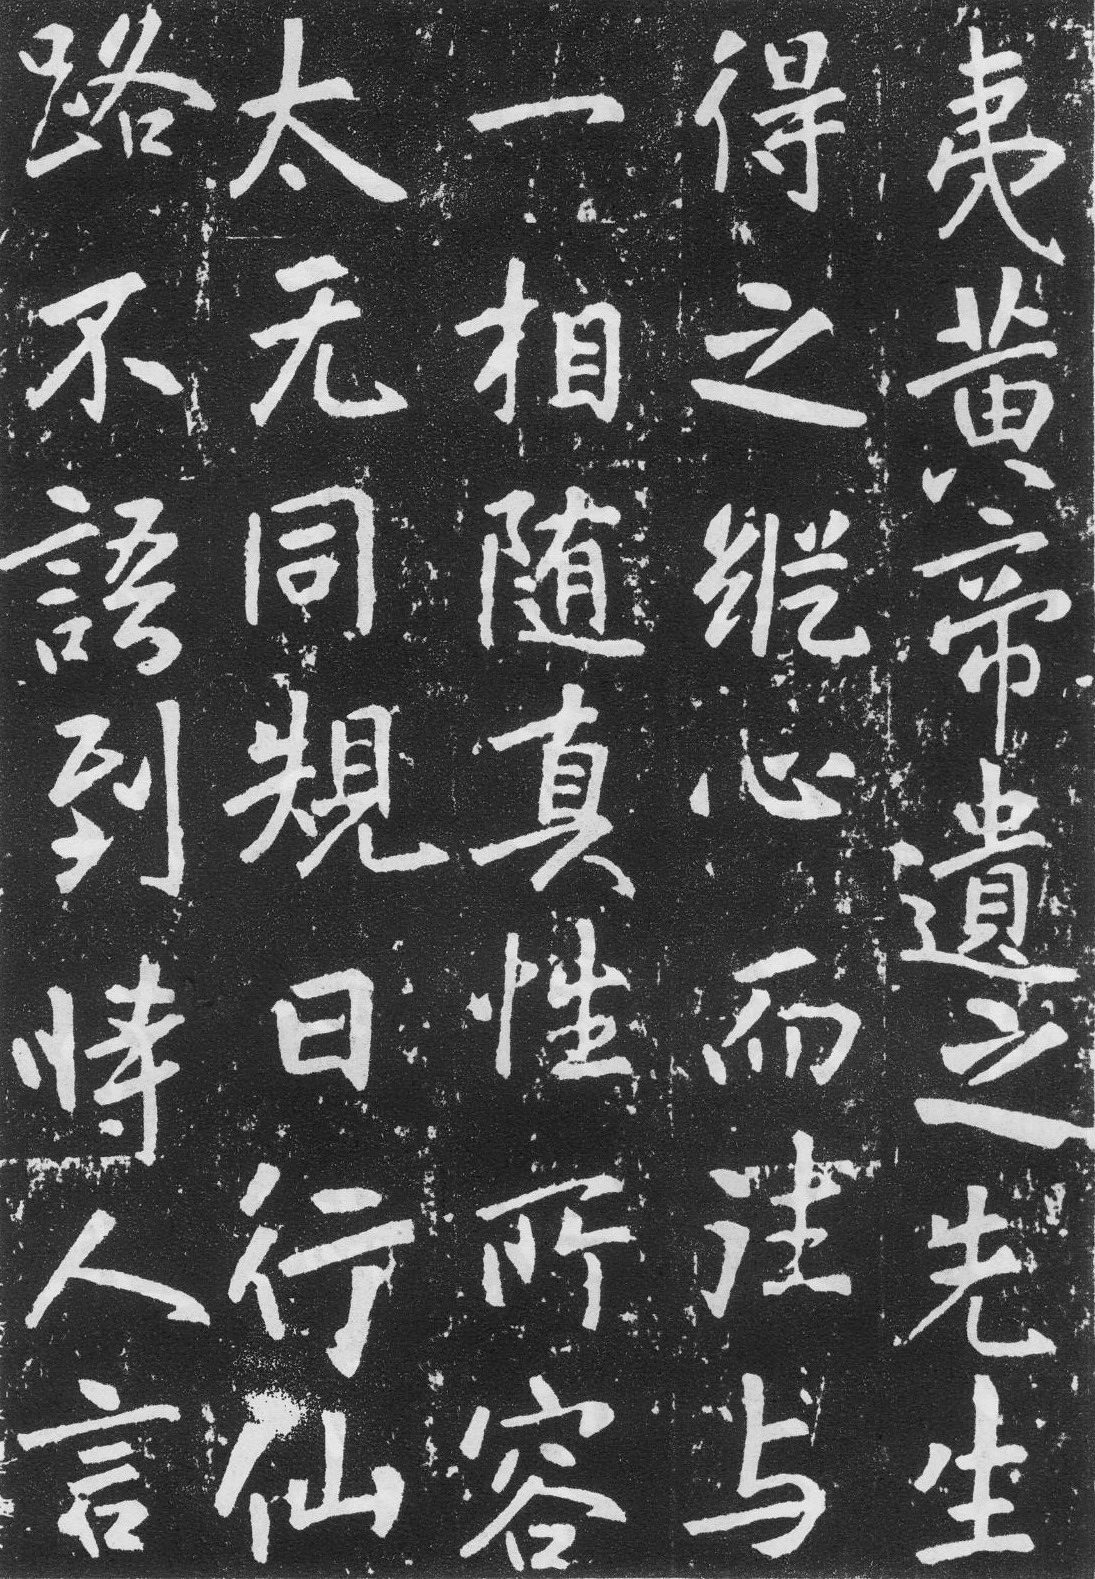 夷黄帝遺之先生
得之縱心而往与
一相随真性所容
太无同規日行仙
路不語到恃人言